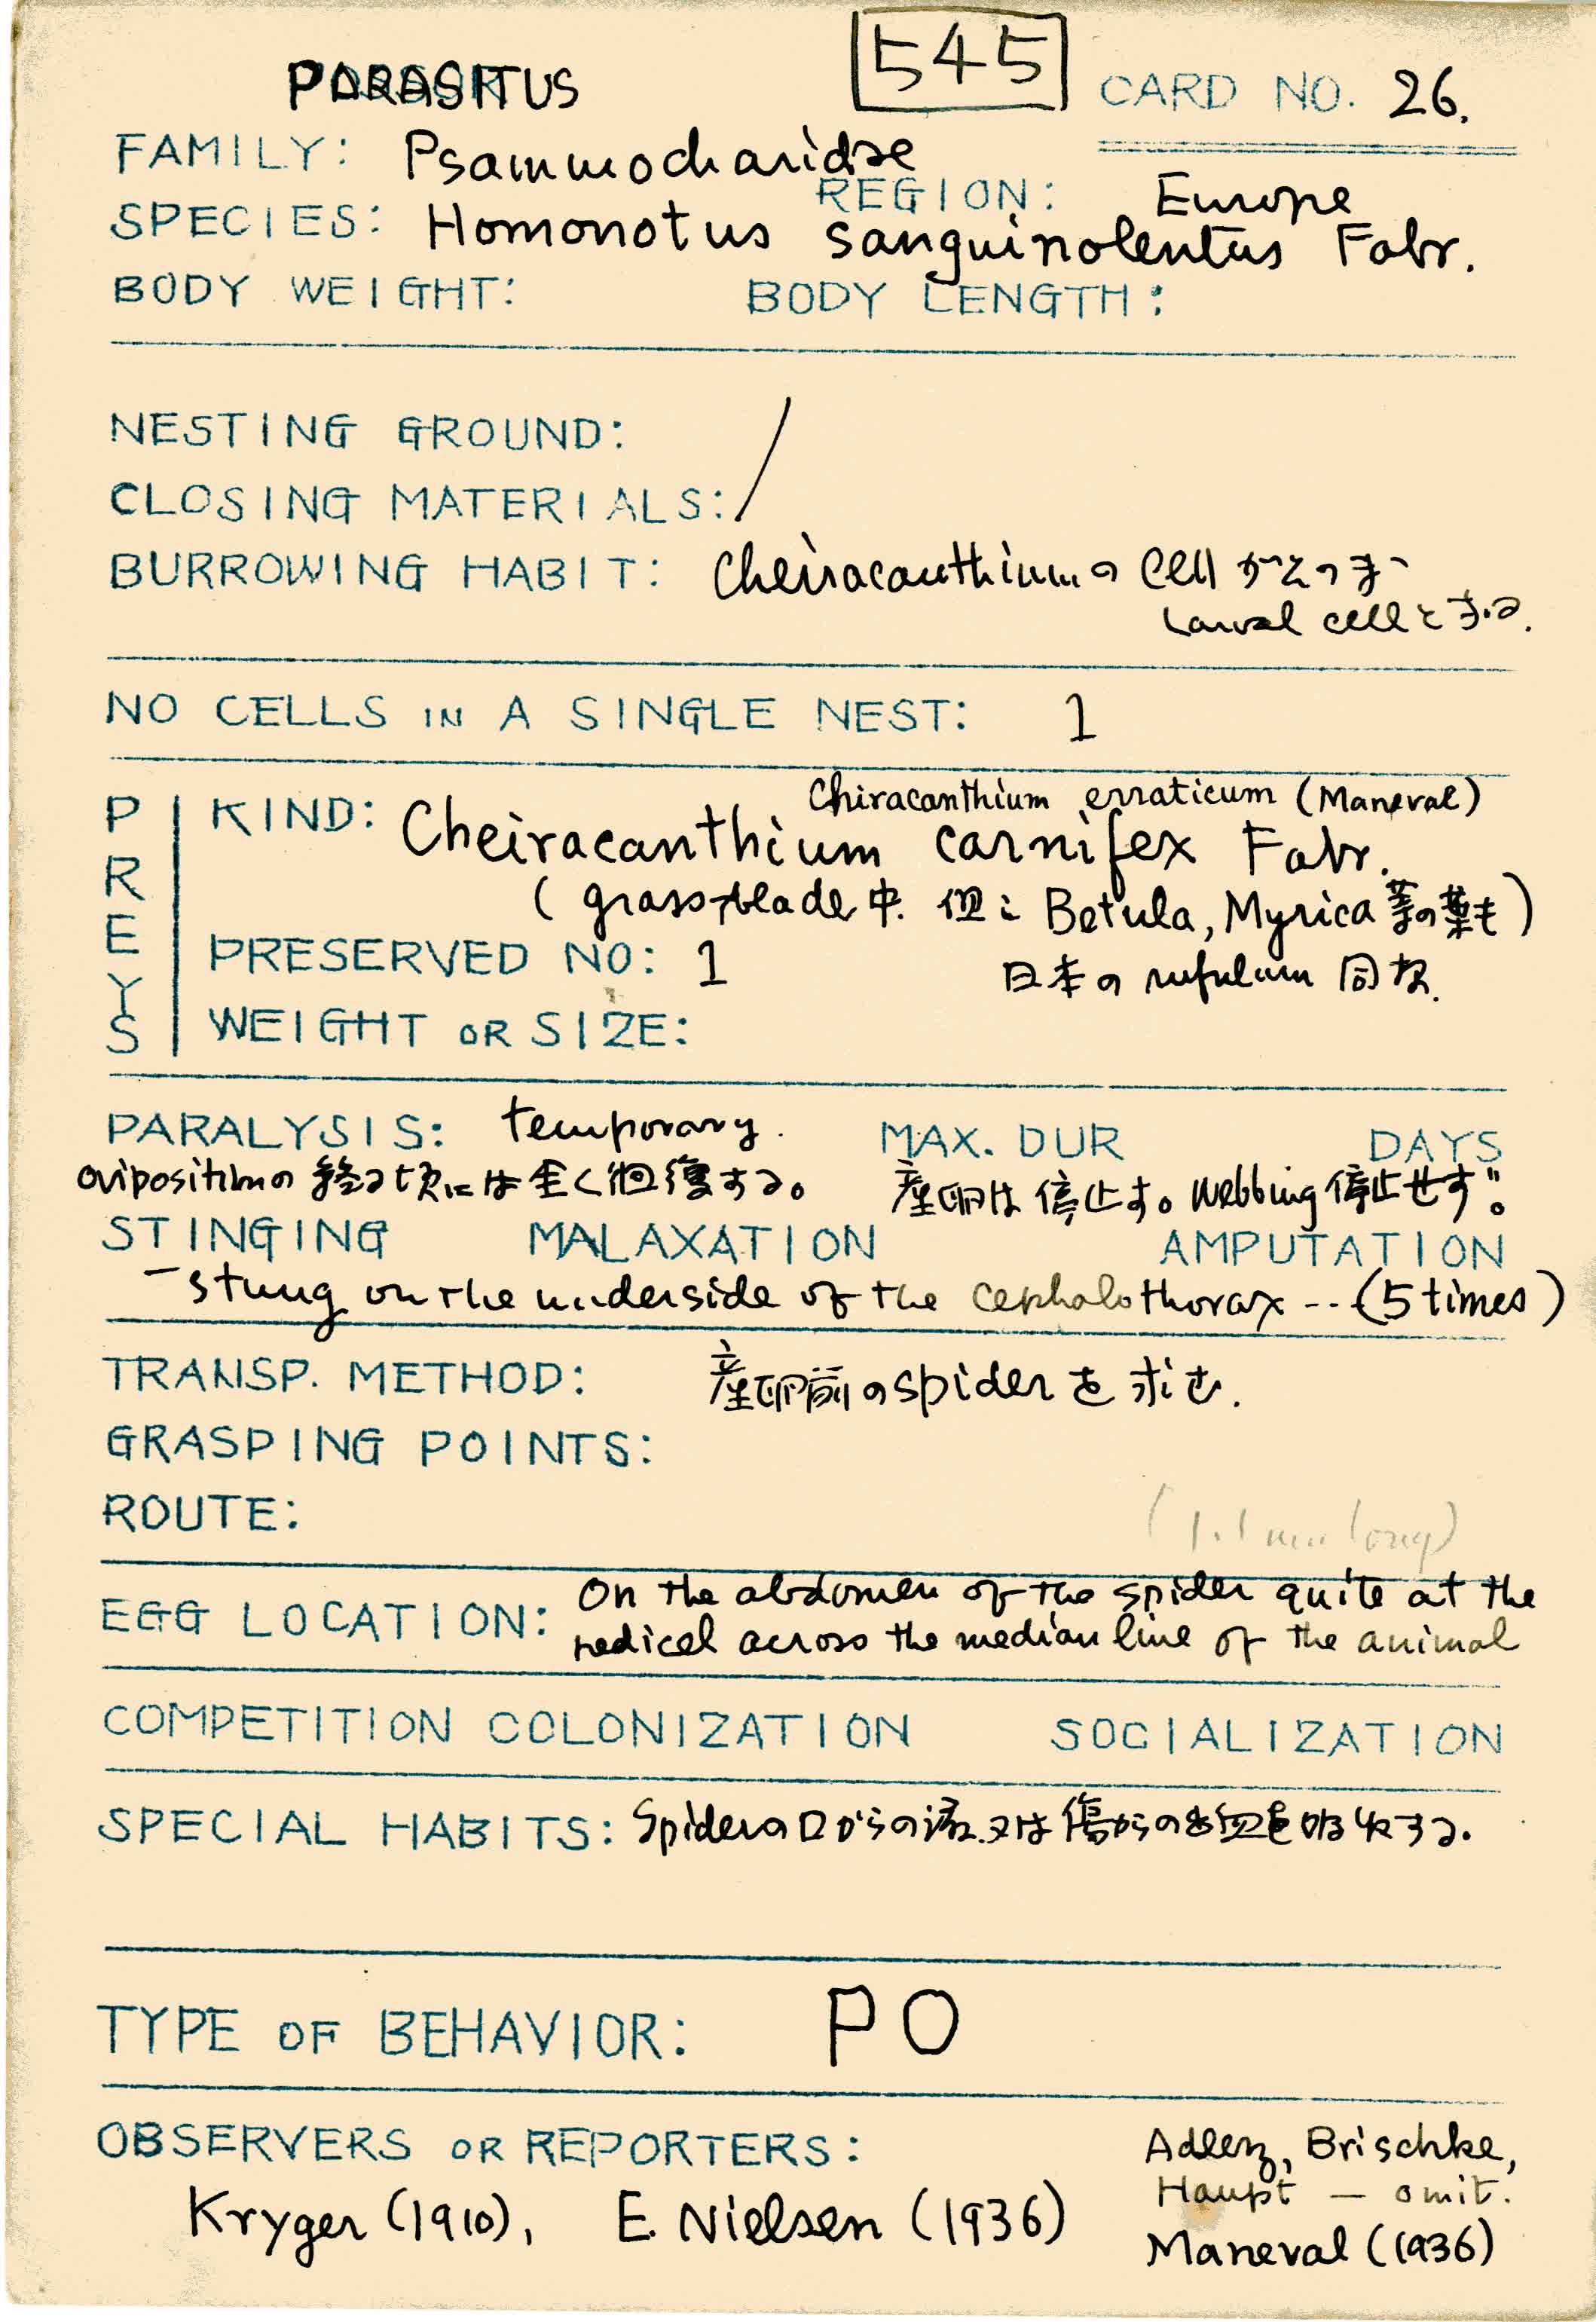 PARASITUS
545
CARD NO. 26.
FAMILY: Psammocharidae
REGION: Europe
SPECIES: Homonotus sanguinolentus Fabr.
BODY WEIGHT: BODY LENGTH:
NESTING GROUND: /
CLOSING MATERIALS:
BURROWING HABIT: Cheiracanthiumの cellがそのまゝ
Larval cellとなる.
NO CELLS IN A SINGLE NEST: 1
PREYS
Chiracanthium erraticum (Maneval)
KIND: Cheiracanthium carnifex Fabr.
(grass-blade中. 但し Betula, Myrica 等の葉も)
PRESERVED NO: 1
日本の rufulum 同様.
WEIGHT OR SIZE:
PARALYSIS: temporary. MAX. DUR DAYS
ovipositionの終る頃には全く回復する。 産卵は停止す。webbing停止せず。
STINGING MALAXATION AMPUTATION
— stung on the underside of the cephalothorax -- (5 times)
TRANSP. METHOD: 産卵前のspiderを求む.
GRASPING POINTS:
ROUTE:
(1.1 mm long)
EGG LOCATION: On the abdomen of the spider quite at the
pedicel across the median line of the animal
COMPETITION COLONIZATION SOCIALIZATION
SPECIAL HABITS: Spiderの口からの液又は傷からの出血を吸收する.
TYPE OF BEHAVIOR: PO
OBSERVERS OR REPORTERS:
Kryger (1910), E. Nielsen (1936)
Adlerz, Brischke,
Haupt — omit.
Maneval (1936)